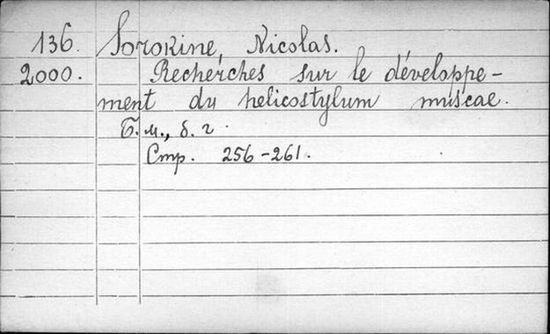 136. Sorokine, Nicolas.
2000. Recherches sur le développe-
ment du helicostylum muscae.
Б. м., б. г.
Стр. 256-261.